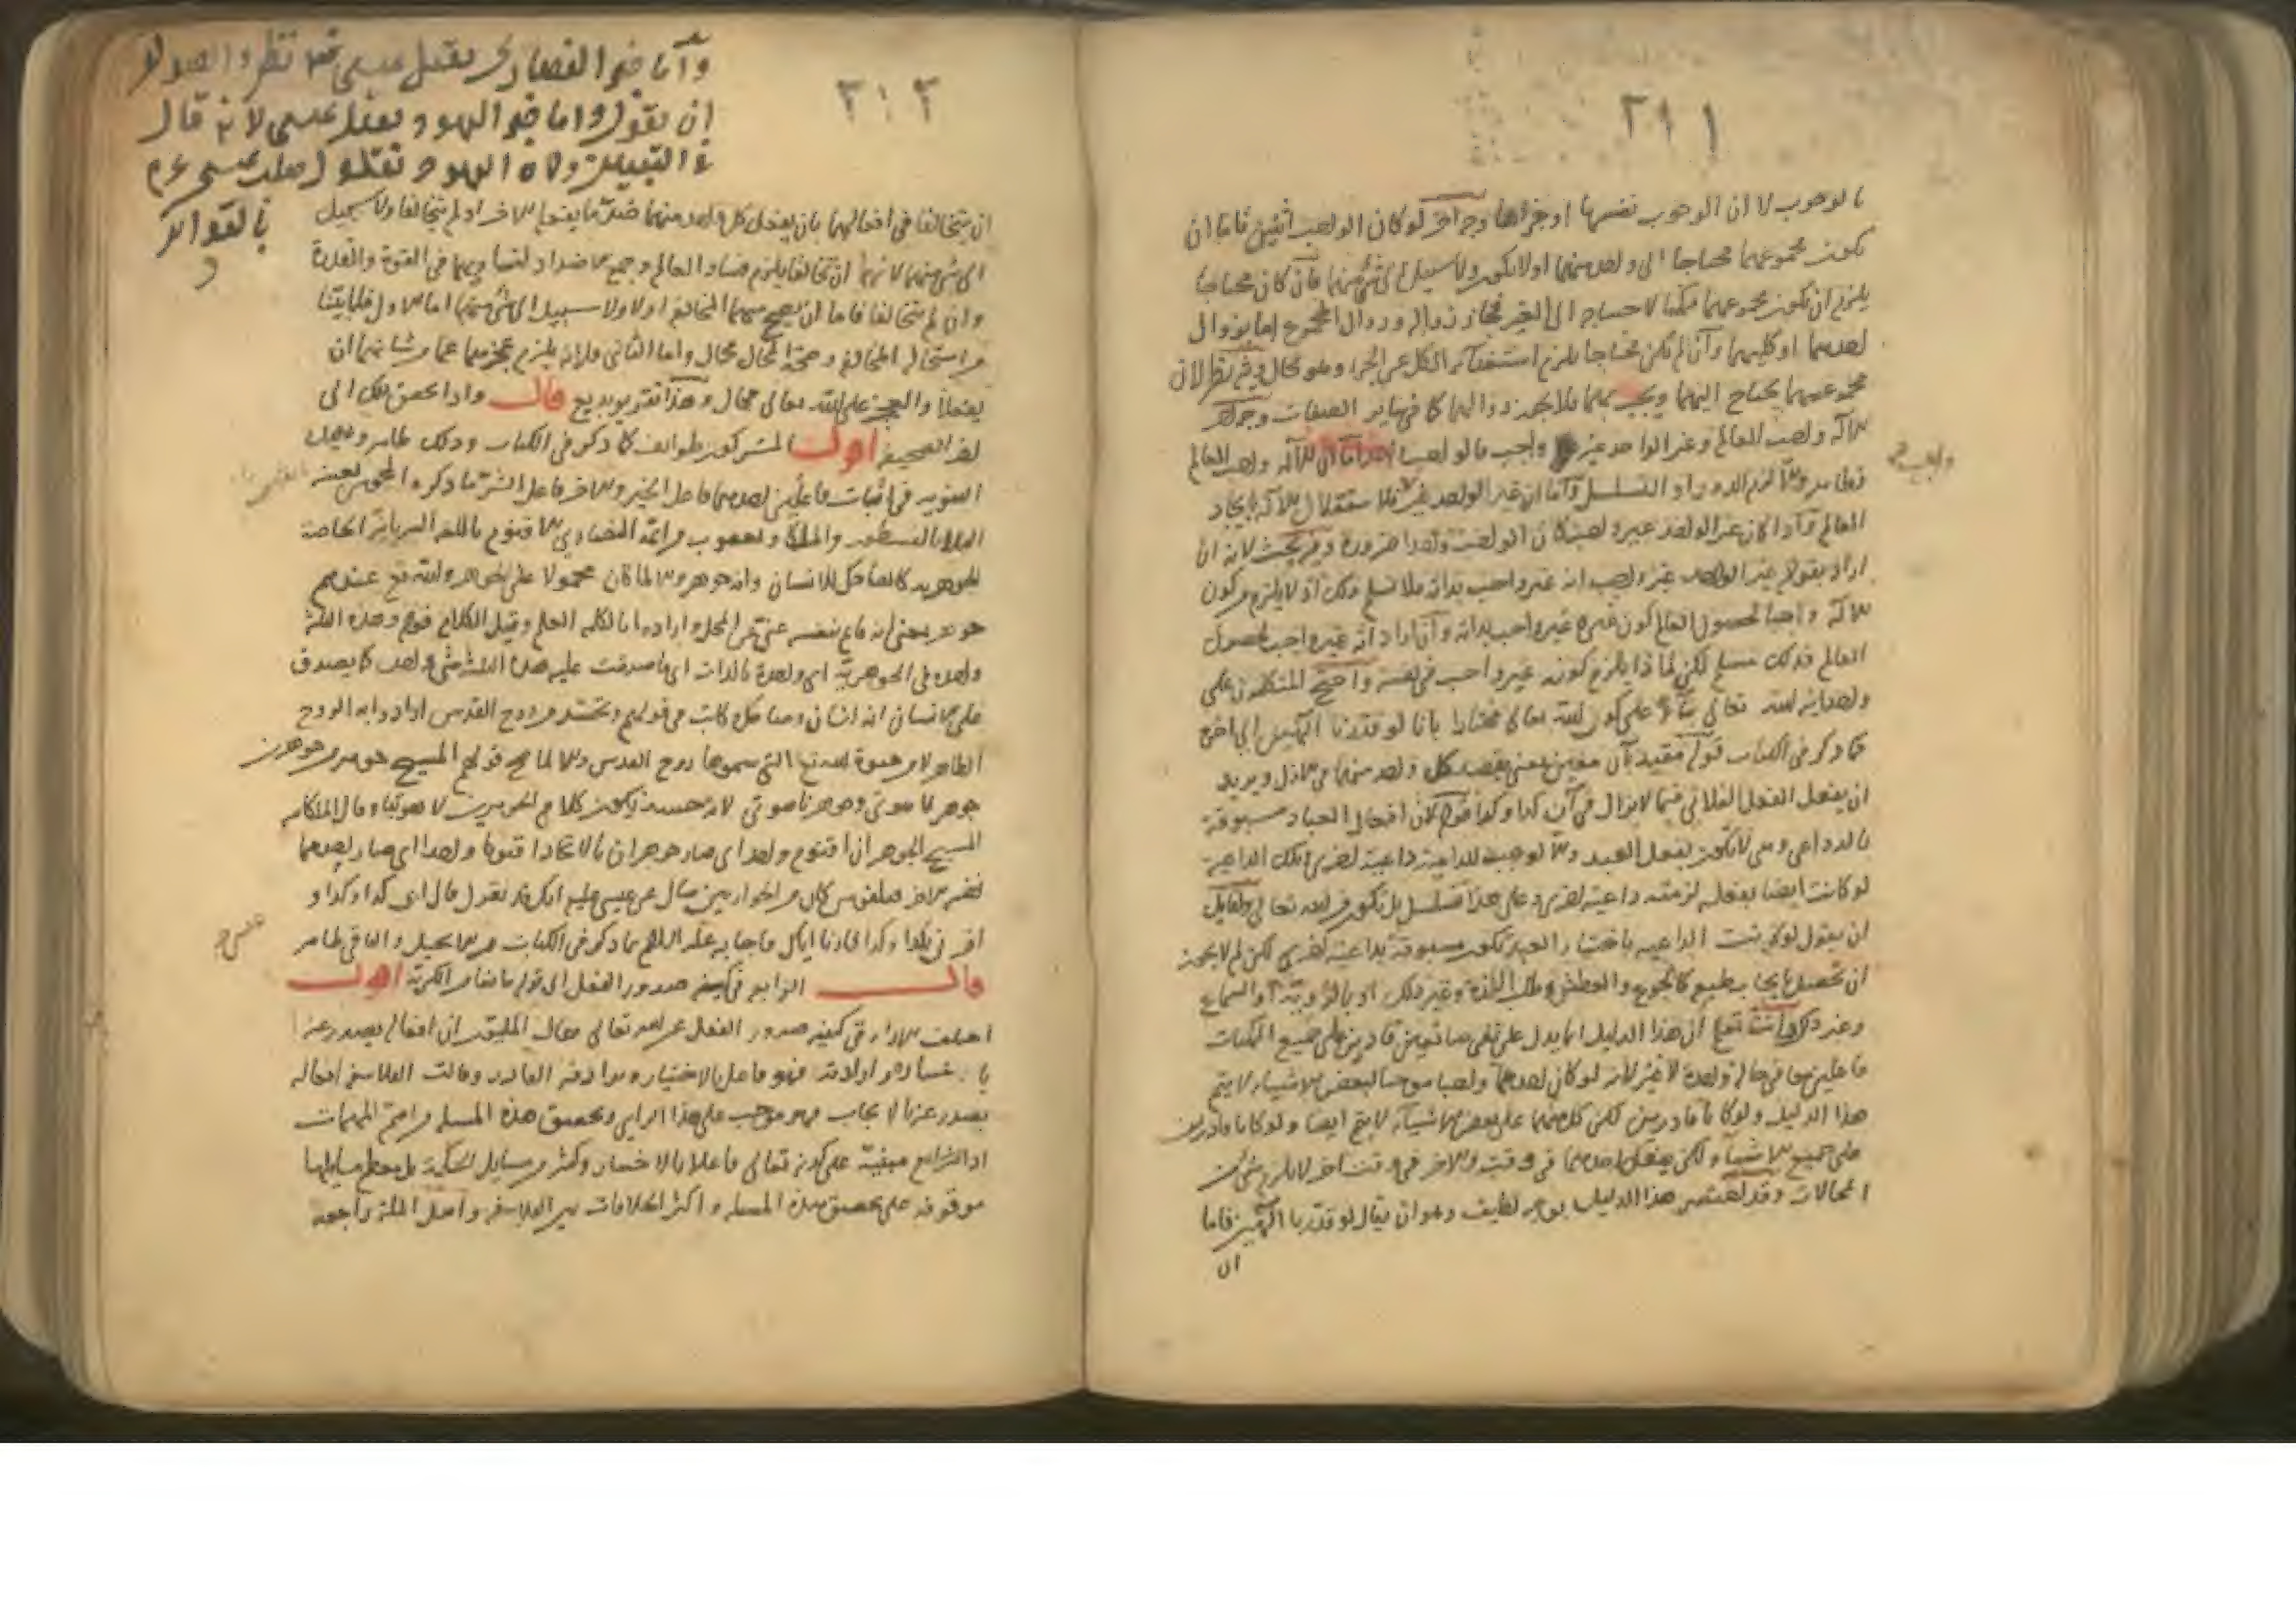 ٢١١
بالوجوب لا ان الوجوب نفسها او جزاها وجه اخر لو كان الواجب اثنين فاما ان
يكون مجموعهما محتاجا الى واحد منهما او لا يكون ولا سبيل الى شئ منهما فان كان محتاجا
يلزم ان يكون مجموعهما ممكنا لاحتياجه الى الغير فجاز زواله وزوال المجموع اما بزوال
احدهما او كليهما وان لم يكن محتاجا يلزم استغناء الكل عن الجزء وهو محال وفيه نظر لان
مجموعهما يحتاج اليهما ويجب بهما فلا يجوز زوالهما كما في سائر الصفات وجه اخر
الاله واجب العالم وغير الواحد غير واجب فالواجب واحد اما ان الاله واجب العالم
فظاهر والا لزم الدور او التسلسل واما ان غير الواحد غير فلاستقلال الاله بايجاد
العالم واذا كان غير الواحد غير واجب كان الواجب واحدا ضرورة وفيه بحث لانه ان
اراد بقوله غير الواحد غير واجب انه غير واجب بذاته فلا نسلم ذلك اذ لا يلزم من كون
الاله واجبا لحصول العالم كون غيره غير واجب بذاته وان اراد انه غير واجب لحصول
العالم فذلك مسلم لكن لماذا يلزم كونه غير واجب في نفسه واحتج المتكلمون على
واحدانية الله تعالى بناء على كون الله تعالى مختارا بانا لو قدرنا الهين الى اخره
كما ذكر في الكتاب قوله مقيد بآن معين يعني يقصد كل واحد منهما في الازل ويريد
ان يفعل الفعل الفلاني فيما لا يزال في آن كذا وكذا قوله لان افعال العباد مسبوقة
بالدواعي وهي لا تكون بفعل العبد والا لوجبت للداعية داعية اخرى وتلك الداعية
لو كانت ايضا بفعله لزمته داعية اخرى وعلى هذا فتسلسل بل تكون من الله تعالى ولقايل
ان يقول لو كانت الداعية باختيار العبد تكون مسبوقة بداعية اخرى لكن لم لا يجوز
ان تحصل بايجاب طبيع كالجوع والعطش وطلب اللذة وغير ذلك او بالرؤية والسماع
وغير ذلك وانت تعلم ان هذا الدليل انما يدل على نفي صانعين قادرين على جميع الممكنات
فاعلين معا في حالة واحدة لا غير لانه لو كان احدهما واجبا موجبا لبعض الاشياء لا يتم
هذا الدليل ولو كانا قادرين لكن كل منهما على بعض الاشياء لا يتم ايضا ولو كانا قادرين
على جميع الاشياء لكن يفعل احدهما في وقت والاخر في وقت اخر لا يلزم شئ من
المحالات وقد اختصر هذا الدليل بوجه لطيف وهو ان يقال لو قدرنا الهين فاما
ان
واجب
٢١٢
واما خبر النصارى بقتل عيسى ففيه نظر والصواب
ان يقول واما خبر اليهود بقتل عيسى لانه قال
في التبيين ولان اليهود نقلوا صلب عيسى عم
بالتواتر
ان يتخالفا في افعالهما بان يفعل كل واحد منهما ضد ما يفعله الاخر او لم يتخالفا ولا سبيل
الى شئ منهما لانهما ان تخالفا يلزم فساد العالم وجمع الاضداد لتساويهما في القوة والقدرة
وان لم يتخالفا فاما ان يصح منهما المخالفة او لا ولا سبيل الى شئ منهما اما الاول فلما بينا
من استحالة المخالفة وصحة المحال محال واما الثاني فلانه يلزم عجزهما عما من شانهما ان
يفعلا والعجز على الله تعالى محال وهذا تقرير بديع قال واذا تحقق ذلك الى
اخر الصحيفة اقول المشركون طوائف كما ذكر في الكتاب وذلك ظاهر
الثنوية في اثبات فاعلين احدهما فاعل الخير والاخر فاعل الشر ما ذكره المجوس بعينه
والملكا ويعقوب من ائمة النصارى الاقنوم باللغة السريانية الخاصة
الجوهرية كالضاحك للانسان وانه جوهر والا لما كان محمولا على الجوهر والله تع عندهم
جوهر بمعنى انه قائم بنفسه غني عن المحل وارادوا بالكلمة العلم وقيل الكلام قوله وهذه الثلثة
واحدة في الجوهرية اي واحدة بالذات اي ما صدقت عليه هذه الثلثة شئ واحد كما يصدق
على الانسان انه انسان وضاحك كاتب في قولهم وتجسد من روح القدس ارادوا به الروح
الطاهر لا حيوة الله تع التي سموها روح القدس والا لما صح قولهم المسيح جوهر من جوهرين
جوهر لاهوتي وجوهر ناسوتي لانه حينئذ يكون كلا الجوهرين لاهوتيا وقال الملكائية
المسيح الجوهران اقنوم واحد اي صار جوهران بالاتحاد اقنوما واحدا اي صار احدهما
نفس الاخر فيلفوس كان من الحواريين سال عن عيسى عليه انك لم تقول قال ابي كذا وكذا و
امرني بكذا وكذا فارنا اباك فاجابه عليه السلام بما ذكر في الكتاب من الانجيل والباقي ظاهر
قال الرابع في كيفية صدور الفعل الى قوله اقول
اختلفت الاراء في كيفية صدور الفعل عن الله تعالى فقال المليون ان افعاله يصدر عنه
باختياره وارادته فهو فاعل بالاختيار ومرادفه القادر وقالت الفلاسفة افعاله
يصدر عنه بالايجاب فهو موجب على هذا الراي وتحقيق هذه المسئلة من اهم المهمات
اذ الشرايع مبنية على كونه تعالى فاعلا بالاختيار وكثير من مسايل الحكمة بل معظم مسايلها
موقوفة على تحقيق هذه المسئلة واكثر الخلافات بين الفلاسفة واهل الملة راجعة